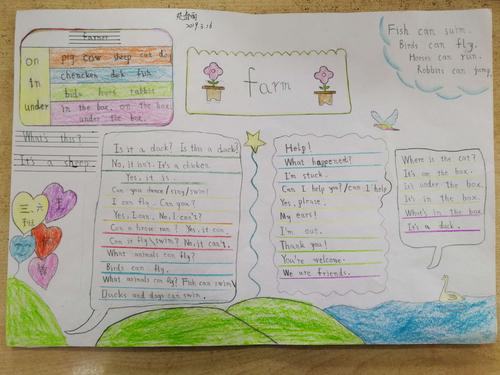 2019.3.16
farmer
on
in
under
pig cow sheep cat dog
chencken duk fish
birds horse rabbit
in the box, on the box
under the box.
farm
Fish can suim.
Birds can fly.
Horses can run.
Robbits can jump
What's this?
It's a sheep
三.六
班
Is it a duck? Is this a duck?
No, it isn't. It's a chicken
Yes, it is.
Can you dance/sing/swim?
I can fly. Can you?
Yes, I can. No, I can't?
Can a horse run? Yes, it can.
Can it fly\swim? No, it can't.
What animals can fly?
Birds can fly.
What animals can fly? Fish can swim
Ducks and dogs can swim.
Help!
What happened?
I'm stuck.
Can I help you?/can I help
Yes, please.
My ears!
I'm out.
Thank you!
You're welcome.
We are friends.
Where is the cat?
It's on the box.
It's under the box.
It's in the box.
What's in the box
It's a duck.